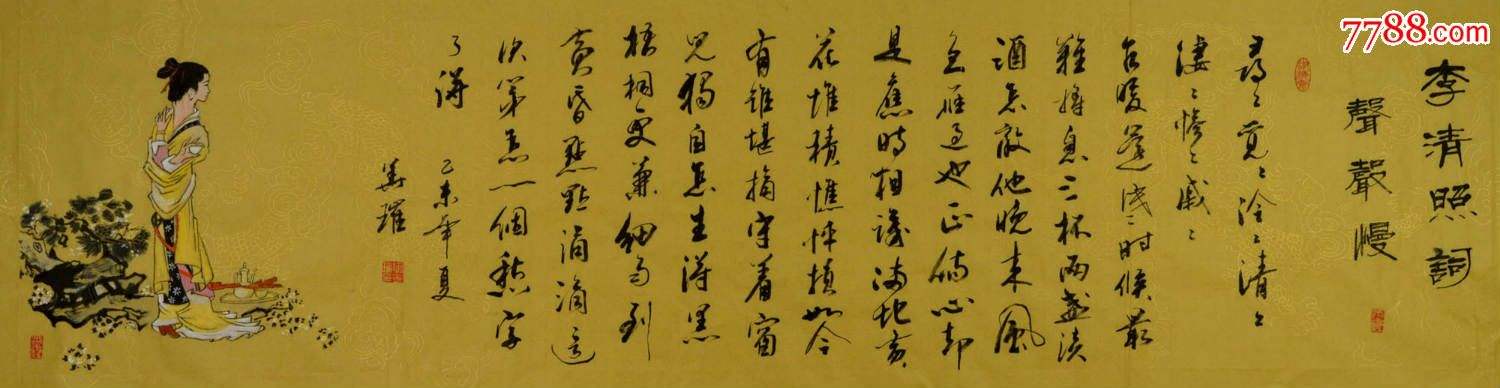 7788.com
李清照詞
聲聲慢
尋〻覓〻冷〻清〻
淒〻慘〻戚〻
乍暖還寒时候最
難將息三杯兩盞淡
酒怎敵他晚来風
急雁過也正傷心却
是舊時相識满地黄
花堆積憔悴損如今
有誰堪摘守着窗
兒獨自怎生得黑
梧桐更兼細雨到
黄昏點點滴滴這
次第怎一個愁字
了得
乙未年夏